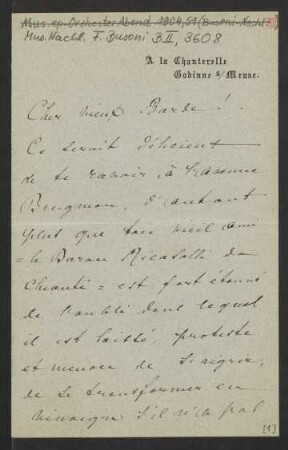 Mus. ep. Orchester Abend 1904, 51 (Busoni-Nachl.
Mus. Nachl. F. Busoni B II, 3608
A la Chanterelle
Godinne s/Meuse.
Cher vieux Barde !
Ce serait délicieux
de te ravoir à l'avenue
Brugman, d'autant
plus que ton vieil ami
= le Baron Ricasolli da
Chianti = est fort étonné
de l'oubli dans lequel
il est laissé, proteste
et menace de s'aigrir,
de se transformer en
vinaigre s'il n'a pas
[1]